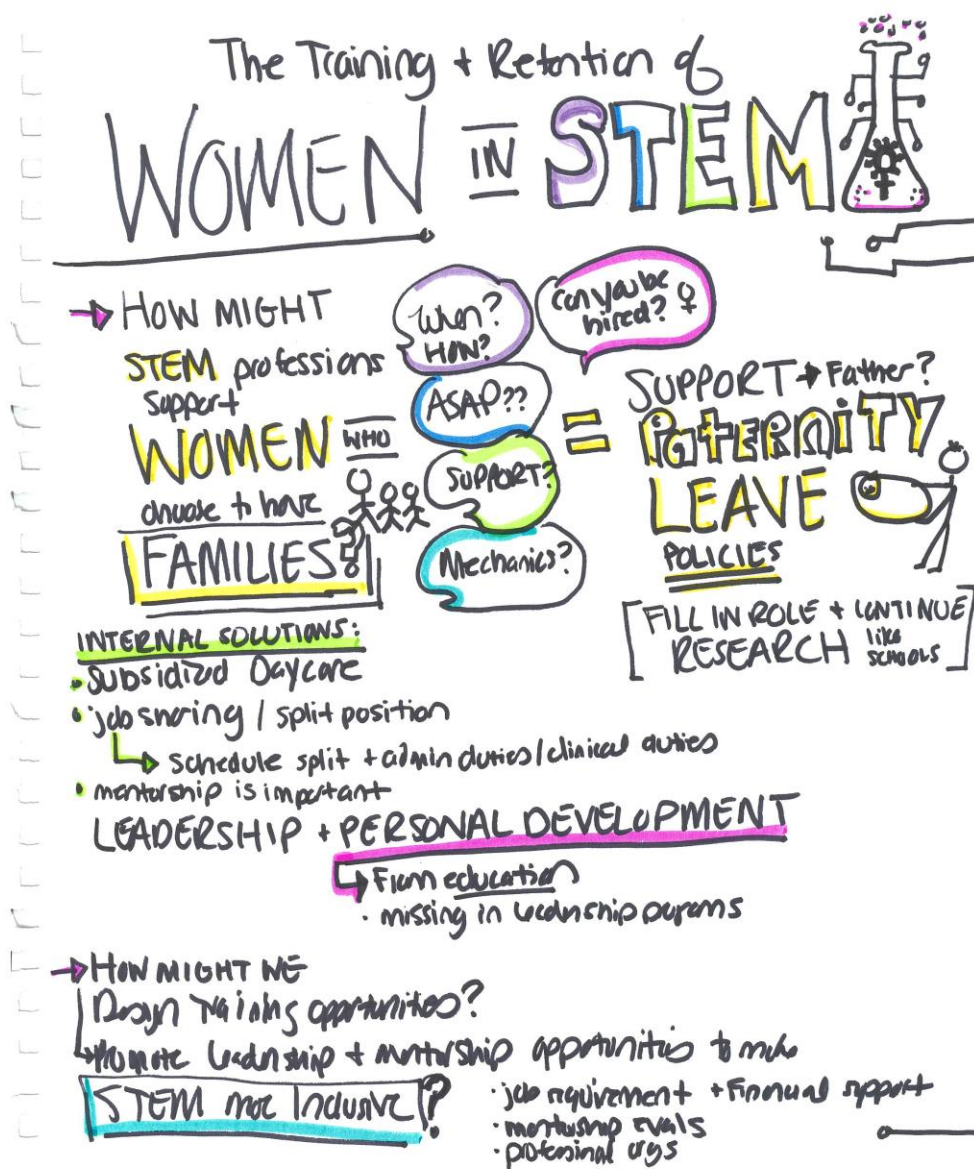 The Training + Retention of
WOMEN IN STEM
→ HOW MIGHT
STEM professions
support
WOMEN WHO
choose to have
FAMILIES?
When?
HOW?
Can you be
hired? ♀
ASAP??
SUPPORT?
Mechanics?
=
SUPPORT → Father?
PATERNITY
LEAVE
POLICIES
[FILL IN ROLE + CONTINUE
RESEARCH like
SCHOOLS]
INTERNAL SOLUTIONS:
• Subsidized Daycare
• job sharing / split position
→ schedule split + admin duties/clinical duties
• mentorship is important
LEADERSHIP + PERSONAL DEVELOPMENT
→ From education
• missing in leadership programs
→ HOW MIGHT WE
Design Training opportunities?
→ Promote leadership + mentorship opportunities to make
STEM more Inclusive?
• job requirement + Financial support
• mentorship evals
• professional orgs